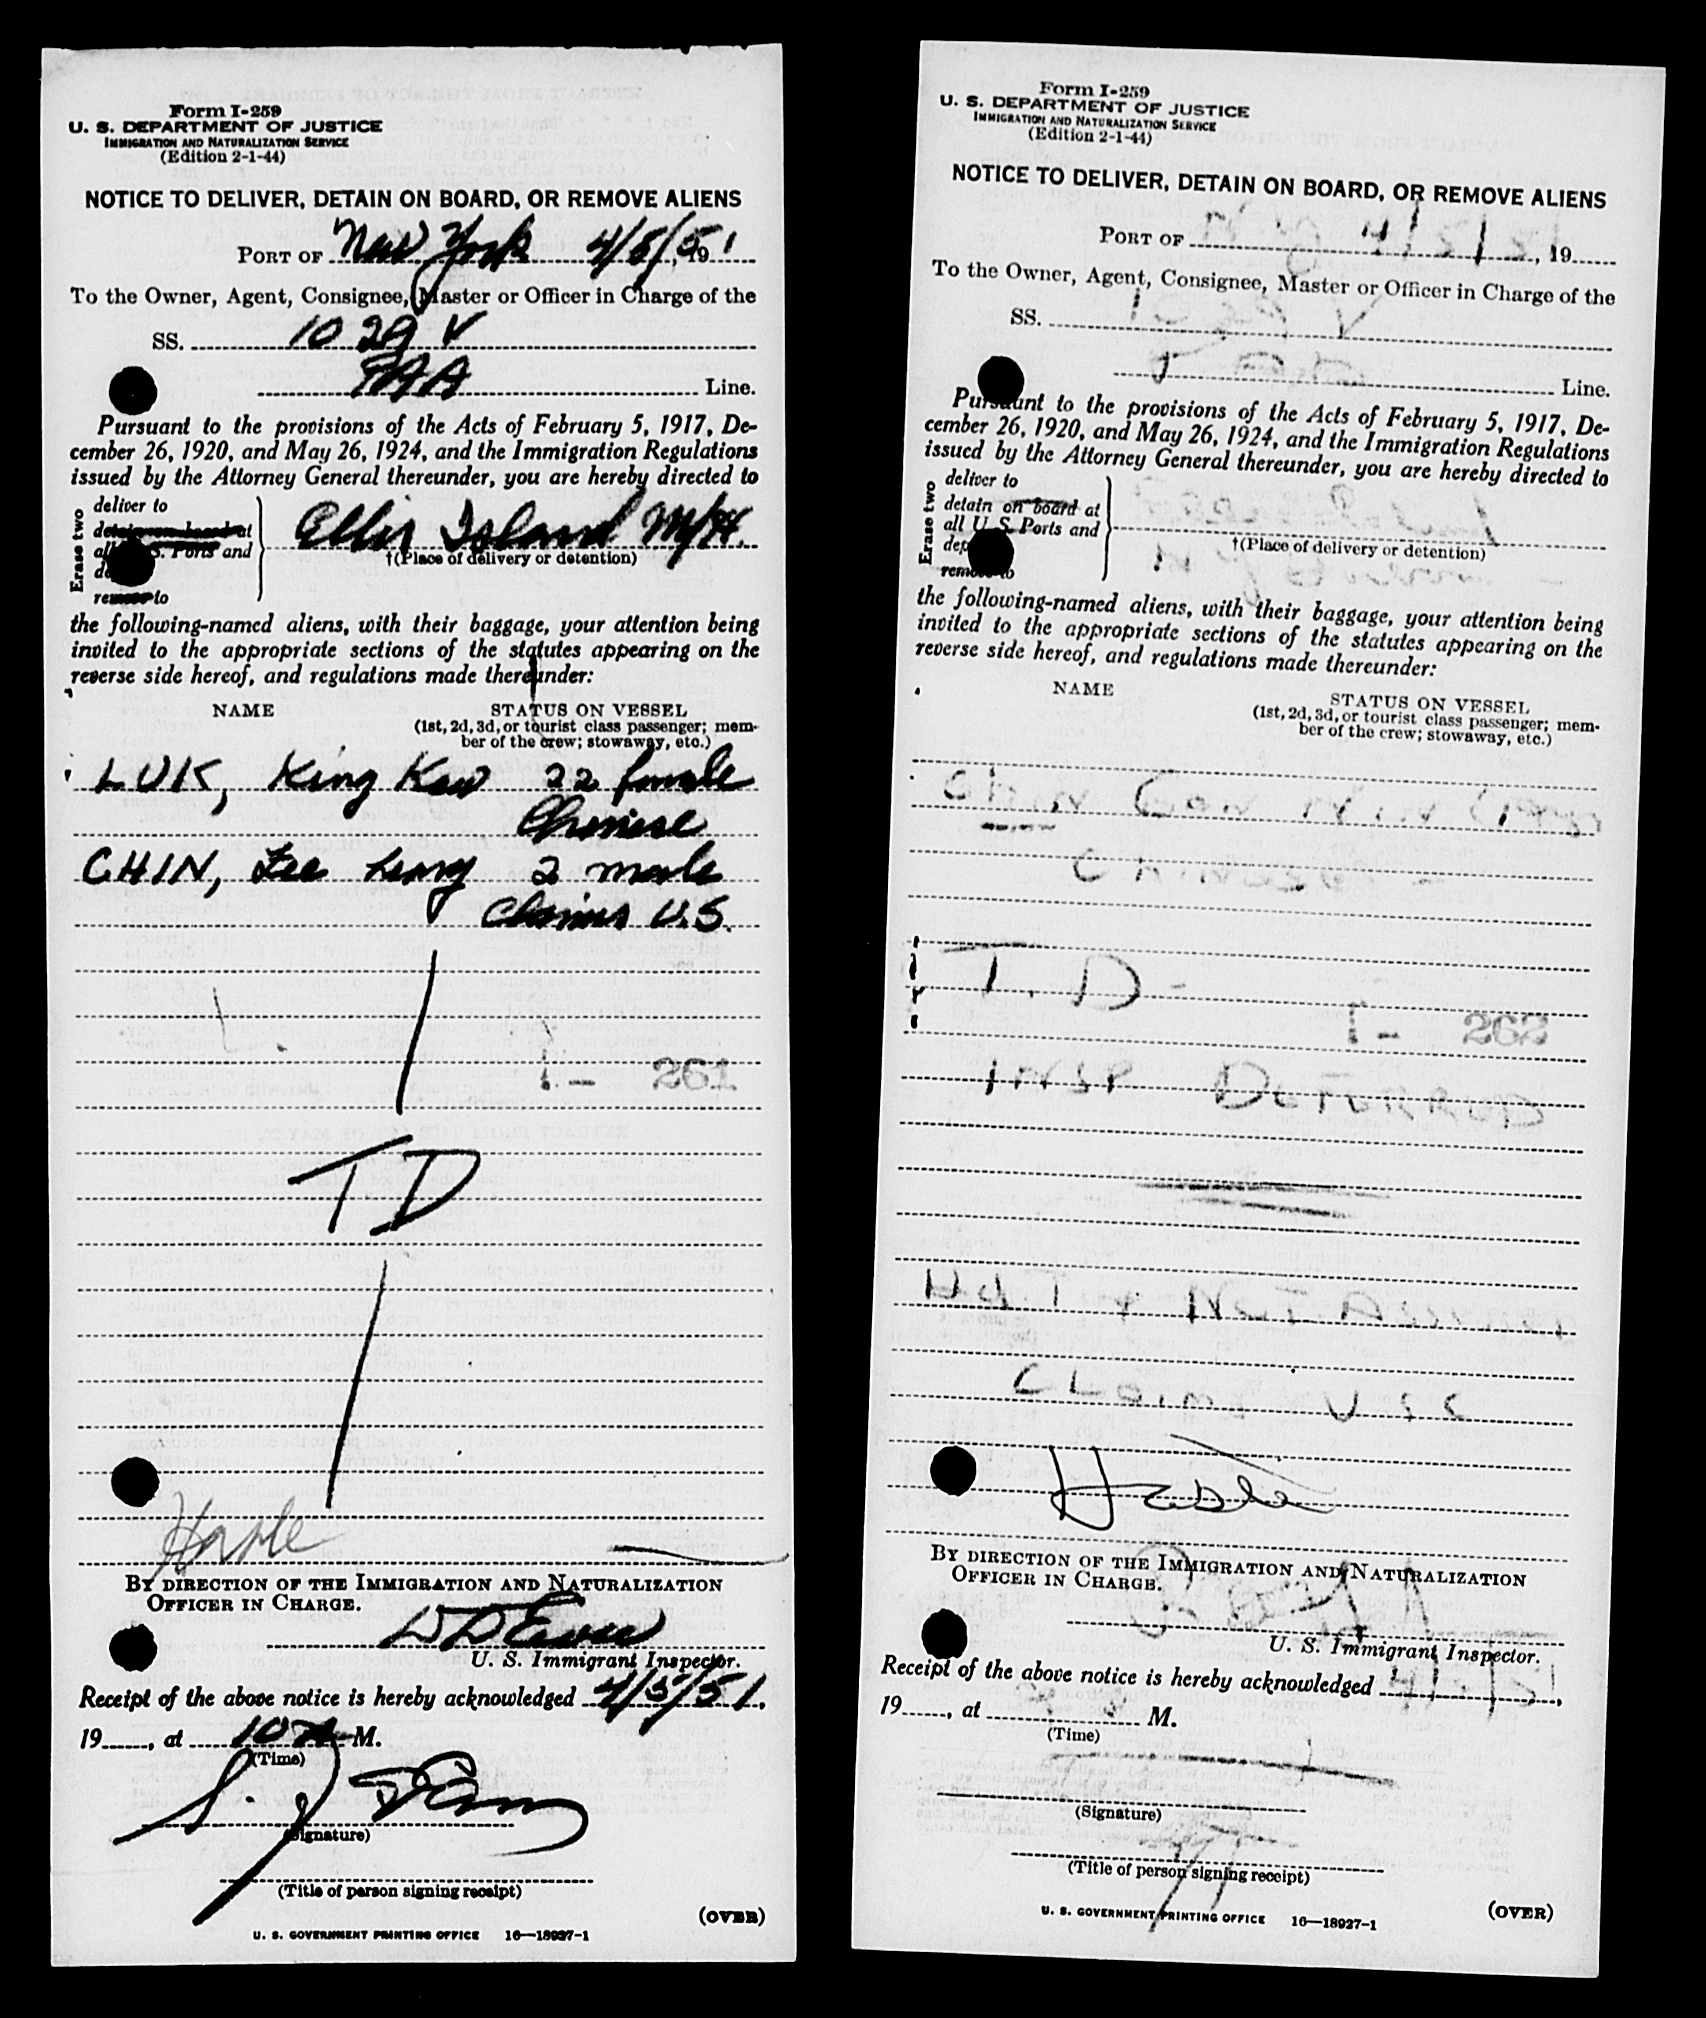 Form I-259
U. S. DEPARTMENT OF JUSTICE
IMMIGRATION AND NATURALIZATION SERVICE
(Edition 2-1-44)
NOTICE TO DELIVER, DETAIN ON BOARD, OR REMOVE ALIENS
PORT OF New York 4/5/51, 19
To the Owner, Agent, Consignee, Master or Officer in Charge of the
SS. 1029 V
PAA Line.
Pursuant to the provisions of the Acts of February 5, 1917, De-
cember 26, 1920, and May 26, 1924, and the Immigration Regulations
issued by the Attorney General thereunder, you are hereby directed to
Erase two
deliver to
detain on board at
all U. S. Ports and
remove to
Ellis Island M/H.
†(Place of delivery or detention)
the following-named aliens, with their baggage, your attention being
invited to the appropriate sections of the statutes appearing on the
reverse side hereof, and regulations made thereunder:
NAME STATUS ON VESSEL
(1st, 2d, 3d, or tourist class passenger; mem-
ber of the crew; stowaway, etc.)
LUK, King Kew 22 female
Chinese
CHIN, Lee Leong 2 male
Claims U.S.
1- 261
TD
BY DIRECTION OF THE IMMIGRATION AND NATURALIZATION
OFFICER IN CHARGE.
U. S. Immigrant Inspector.
Receipt of the above notice is hereby acknowledged 4/5/51,
19, at 10 A M.
(Time)
(Signature)
(Title of person signing receipt)
(OVER)
U. S. GOVERNMENT PRINTING OFFICE 16—18927-1
Form I-259
U. S. DEPARTMENT OF JUSTICE
IMMIGRATION AND NATURALIZATION SERVICE
(Edition 2-1-44)
NOTICE TO DELIVER, DETAIN ON BOARD, OR REMOVE ALIENS
PORT OF , 19
To the Owner, Agent, Consignee, Master or Officer in Charge of the
SS.
Line.
Pursuant to the provisions of the Acts of February 5, 1917, De-
cember 26, 1920, and May 26, 1924, and the Immigration Regulations
issued by the Attorney General thereunder, you are hereby directed to
Erase two
deliver to
detain on board at
all U. S. Ports and
remove to
†(Place of delivery or detention)
the following-named aliens, with their baggage, your attention being
invited to the appropriate sections of the statutes appearing on the
reverse side hereof, and regulations made thereunder:
NAME STATUS ON VESSEL
(1st, 2d, 3d, or tourist class passenger; mem-
ber of the crew; stowaway, etc.)
CHIN
CHINESE
T. D -
1- 262
INSP DEFERRED
CLAIMS USC
BY DIRECTION OF THE IMMIGRATION AND NATURALIZATION
OFFICER IN CHARGE.
U. S. Immigrant Inspector.
Receipt of the above notice is hereby acknowledged ,
19, at M.
(Time)
(Signature)
(Title of person signing receipt)
(OVER)
U. S. GOVERNMENT PRINTING OFFICE 16—18927-1